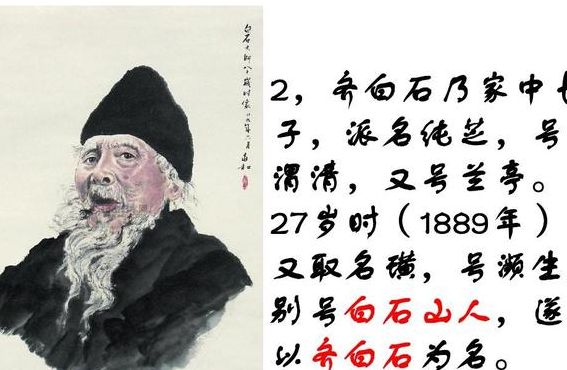 白石大师八十岁时像
2，齐白石乃家中长
子，派名纯芝，号
渭清，又号兰亭。
27岁时（1889年）
又取名璜，号濒生
别号白石山人，遂
以齐白石为名。